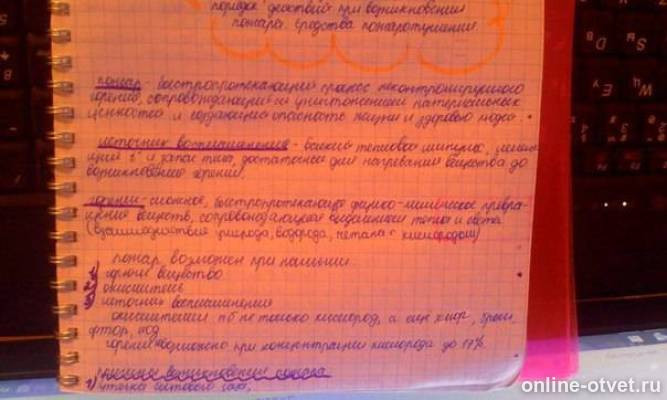 порядок действий при возникновении
пожара. Средства пожаротушения.
пожар - быстропротекающий процесс неконтролируемого
горения, сопровождающийся уничтожением материальных
ценностей и создающий опасность жизни и здоровью людей.
источник воспламенения - всякий тепловой импульс,
t° и запас тепла, достаточные для нагревания вещества до
возникновения горения.
горение - сложное, быстропротекающее физико-химическое превра-
щение веществ, сопровождающееся выделением тепла и света
(взаимодействие углерода, водорода, метана с кислородом)
пожар возможен при наличии
1) горючее вещество
2) окислитель
3) источник воспламенения
окислителем мб не только кислород, а еще хлор, бром,
фтор, йод
горение возможно при концентрации кислорода до 17%
причины возникновения пожара
1) утечка бытового газа,
online-otvet.ru